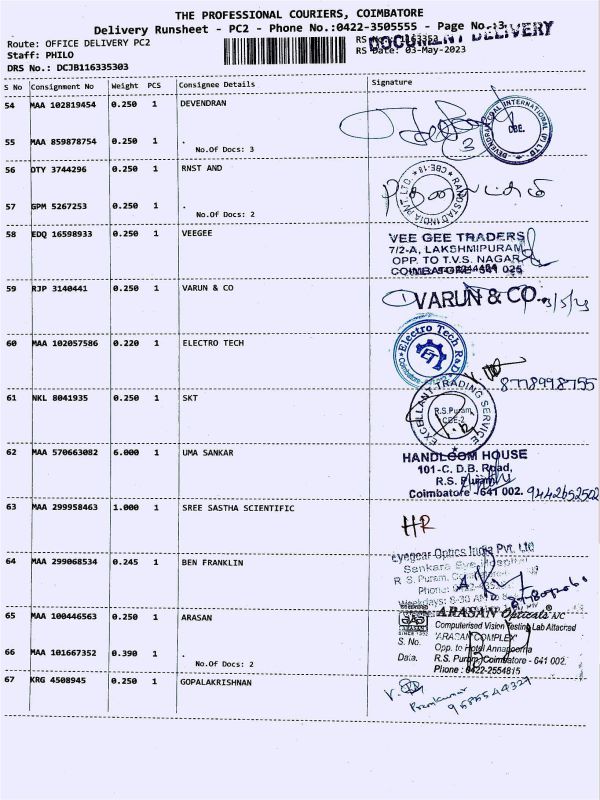 THE PROFESSIONAL COURIERS, COIMBATORE
Delivery Runsheet - PC2 - Phone No.:0422-3505555 - Page No.:3
Route: OFFICE DELIVERY PC2
DOCUMENT DELIVERY
Staff: PHILO
RS Date: 03-May-2023
DRS No.: DCJB116335303
S No Consignment No Weight PCS Consignee Details Signature
54 MAA 102819454 0.250 1 DEVENDRAN
DEVENDRA INTERNATIONAL (P) LTD
CBE.
55 MAA 859878754 0.250 1 .
No.Of Docs: 3
3
56 OTY 3744296 0.250 1 RNST AND
RANDSTAD INDIA PVT. LTD. CBE-18
57 GPM 5267253 0.250 1 .
No.Of Docs: 2
58 EDQ 16598933 0.250 1 VEEGEE
VEE GEE TRADERS
7/2-A, LAKSHMIPURAM
OPP. TO T.V.S. NAGAR
COIMBATORE - 641 025
59 RJP 3140441 0.250 1 VARUN & CO
VARUN & CO. 3/5/23
60 MAA 102057586 0.220 1 ELECTRO TECH
Electro Tech R&D
Coimbatore
ET
8778998755
61 NKL 8041935 0.250 1 SKT
EXCELLANT TRADING SERVICE
R.S.Puram
CBE-2
62 MAA 570663082 6.000 1 UMA SANKAR
HANDLOOM HOUSE
101-C, D.B. Road,
R.S. Puram
Coimbatore - 641 002. 9442652502
63 MAA 299958463 1.000 1 SREE SASTHA SCIENTIFIC
HR
64 MAA 299068534 0.245 1 BEN FRANKLIN
Eyegear Optics India Pvt. Ltd
Sankara Eye Hospital
R S. Puram,
Phone:
65 MAA 100446563 0.250 1 ARASAN
ARASAN Opticals A/C
Computerised Vision Testing Lab Attached
ARASAN
S. No.
'ARASAN COMPLEX'
Opp. to Hotel Annapoorna
66 MAA 101667352 0.390 1 .
No.Of Docs: 2
Date. R.S. Puram, Coimbatore - 641 002.
Phone : 0422-2554815
67 KRG 4508945 0.250 1 GOPALAKRISHNAN
Premkumar
9585544329